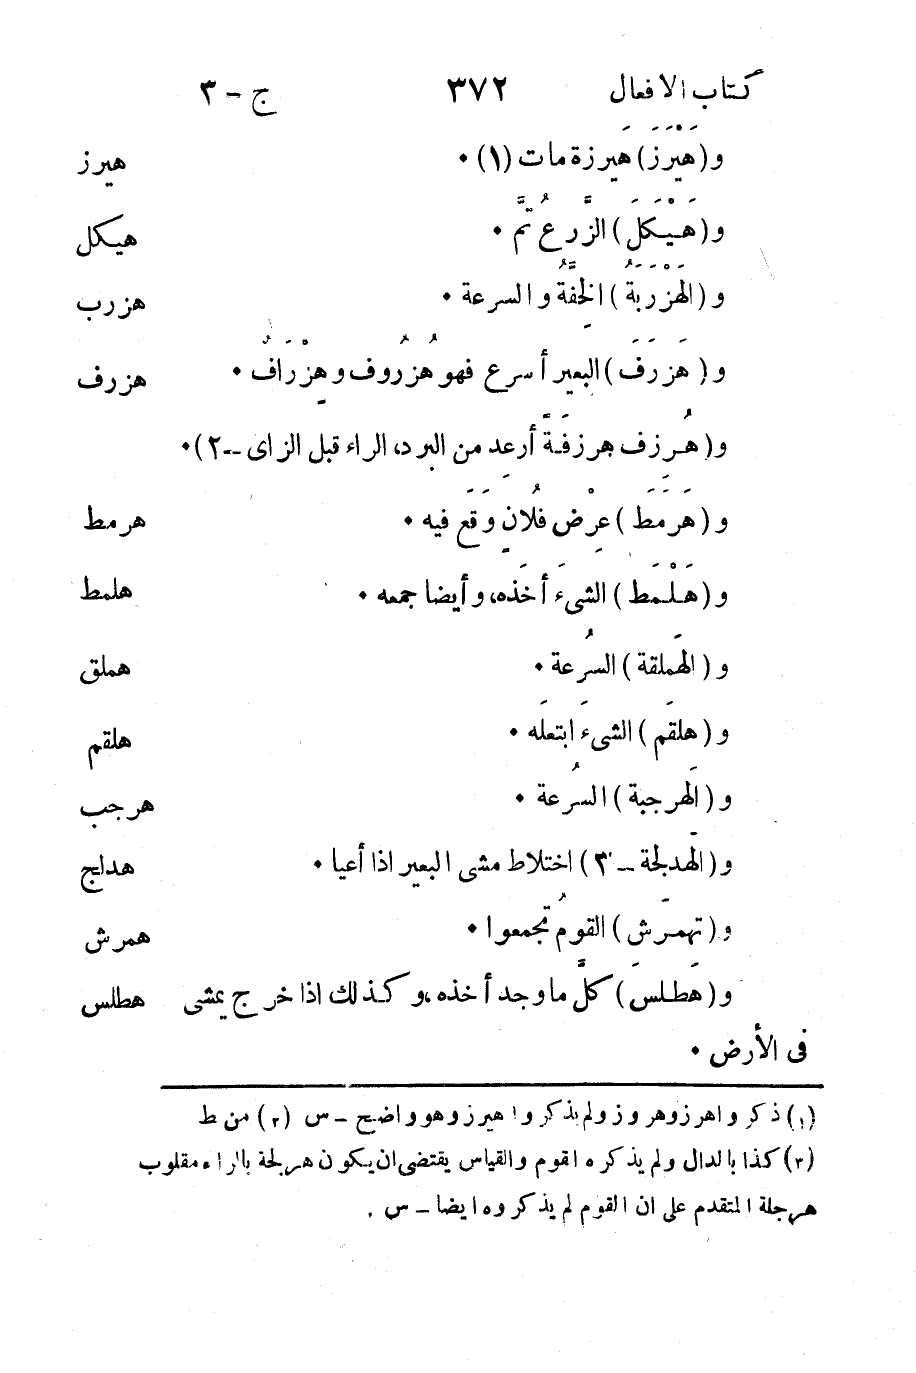 كتاب الافعال ٣٧٢ ج - ٣
و (هَيْرَزَ) هَيرزة مات (١) • هيرز
و (هَيْكَلَ) الزَّرعُ تمَّ • هيكل
و (الهَزْرَبَةُ) الخِفَّةُ والسرعة • هزرب
و (هَزرَفَ) البعير أسرع فهو هُزرُوف وهِزْرَافٌ • هزرف
و (هُرزف هرزفةً أرعِد من البرد، الراء قبل الزاى -- ٢) •
و (هَرَمَطَ) عِرْض فلُانٍ وَقَع فيه • هرمط
و (هَلْمَطَ) الشىءَ أخَذه، وأيضا جمعه • هلمط
و (الهَملقة) السُرعة • هملق
و (هلقَم) الشىءَ ابتعلَه • هلقم
و (الهَرجبة) السُرعة • هرجب
و (الهَدلجة - ٣) اختلاط مشى البعير اذا أعيا • هدلج
و (تهمرَش) القومُ تجمعوا • همرش
و (هَطلَس) كلَّ ما وجد أخذه، وكذلك اذا خرج يمشى هطلس
فى الأرض •
(١) ذكروا هرز وهروز ولم يذكروا هيرز وهو واضح - س (٢) من ط
(٣) كذا بالدال ولم يذكره القوم والقياس يقتضى ان يكون هرلجة بالراء مقلوب
هرجلة المتقدم على ان القوم لم يذكروه ايضا - س .